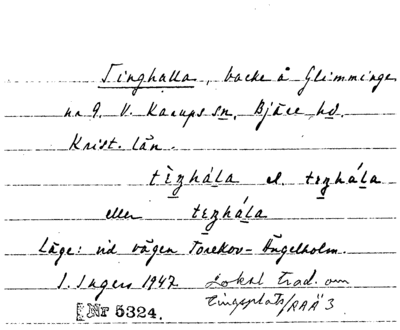 Tinghalla, backe å Glimminge
nr 9. V. Karups sn, Bjäre hd.
Krist. län.
tìŋhála el. tıŋhála
eller tɛŋhála
Läge: vid vägen Torekov–Ängelholm.
I. Ingers 1947 Lokal trad. om
tingsplats/RAÄ 3
Nr 5324.